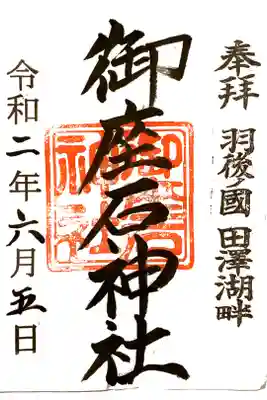 奉拝 羽後ノ國 田澤湖畔
御座石神社
令和二年六月五日